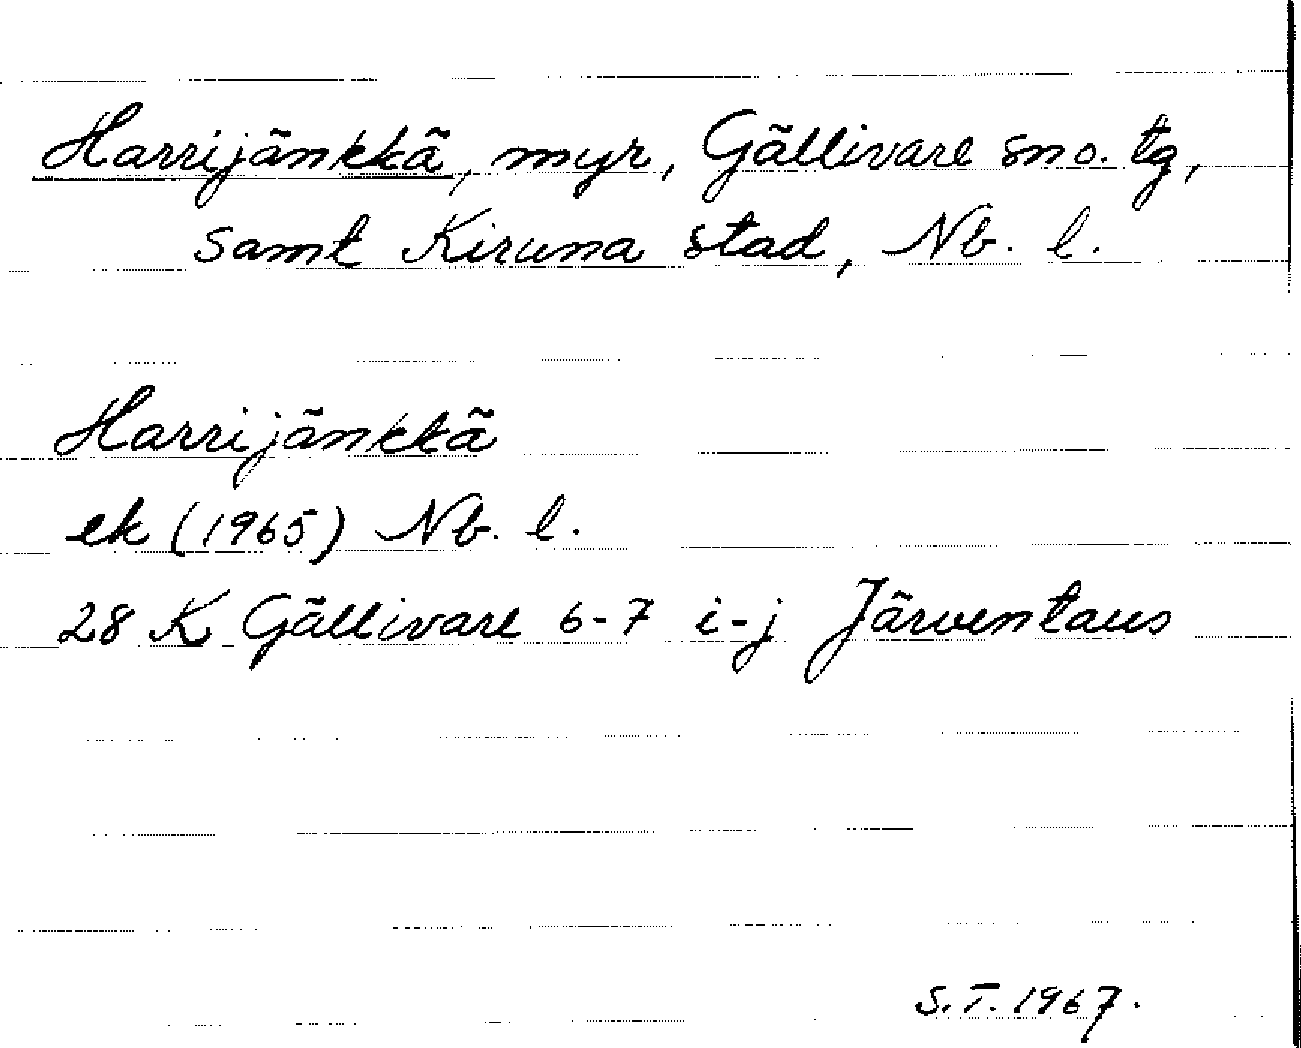 Harrijänkkä, myr, Gällivare sn o. tg,
samt Kiruna stad, Nb. l.
Harrijänkkä
ek (1965) Nb. l.
28 K Gällivare 6-7 i-j Järventaus
S.T. 1967.